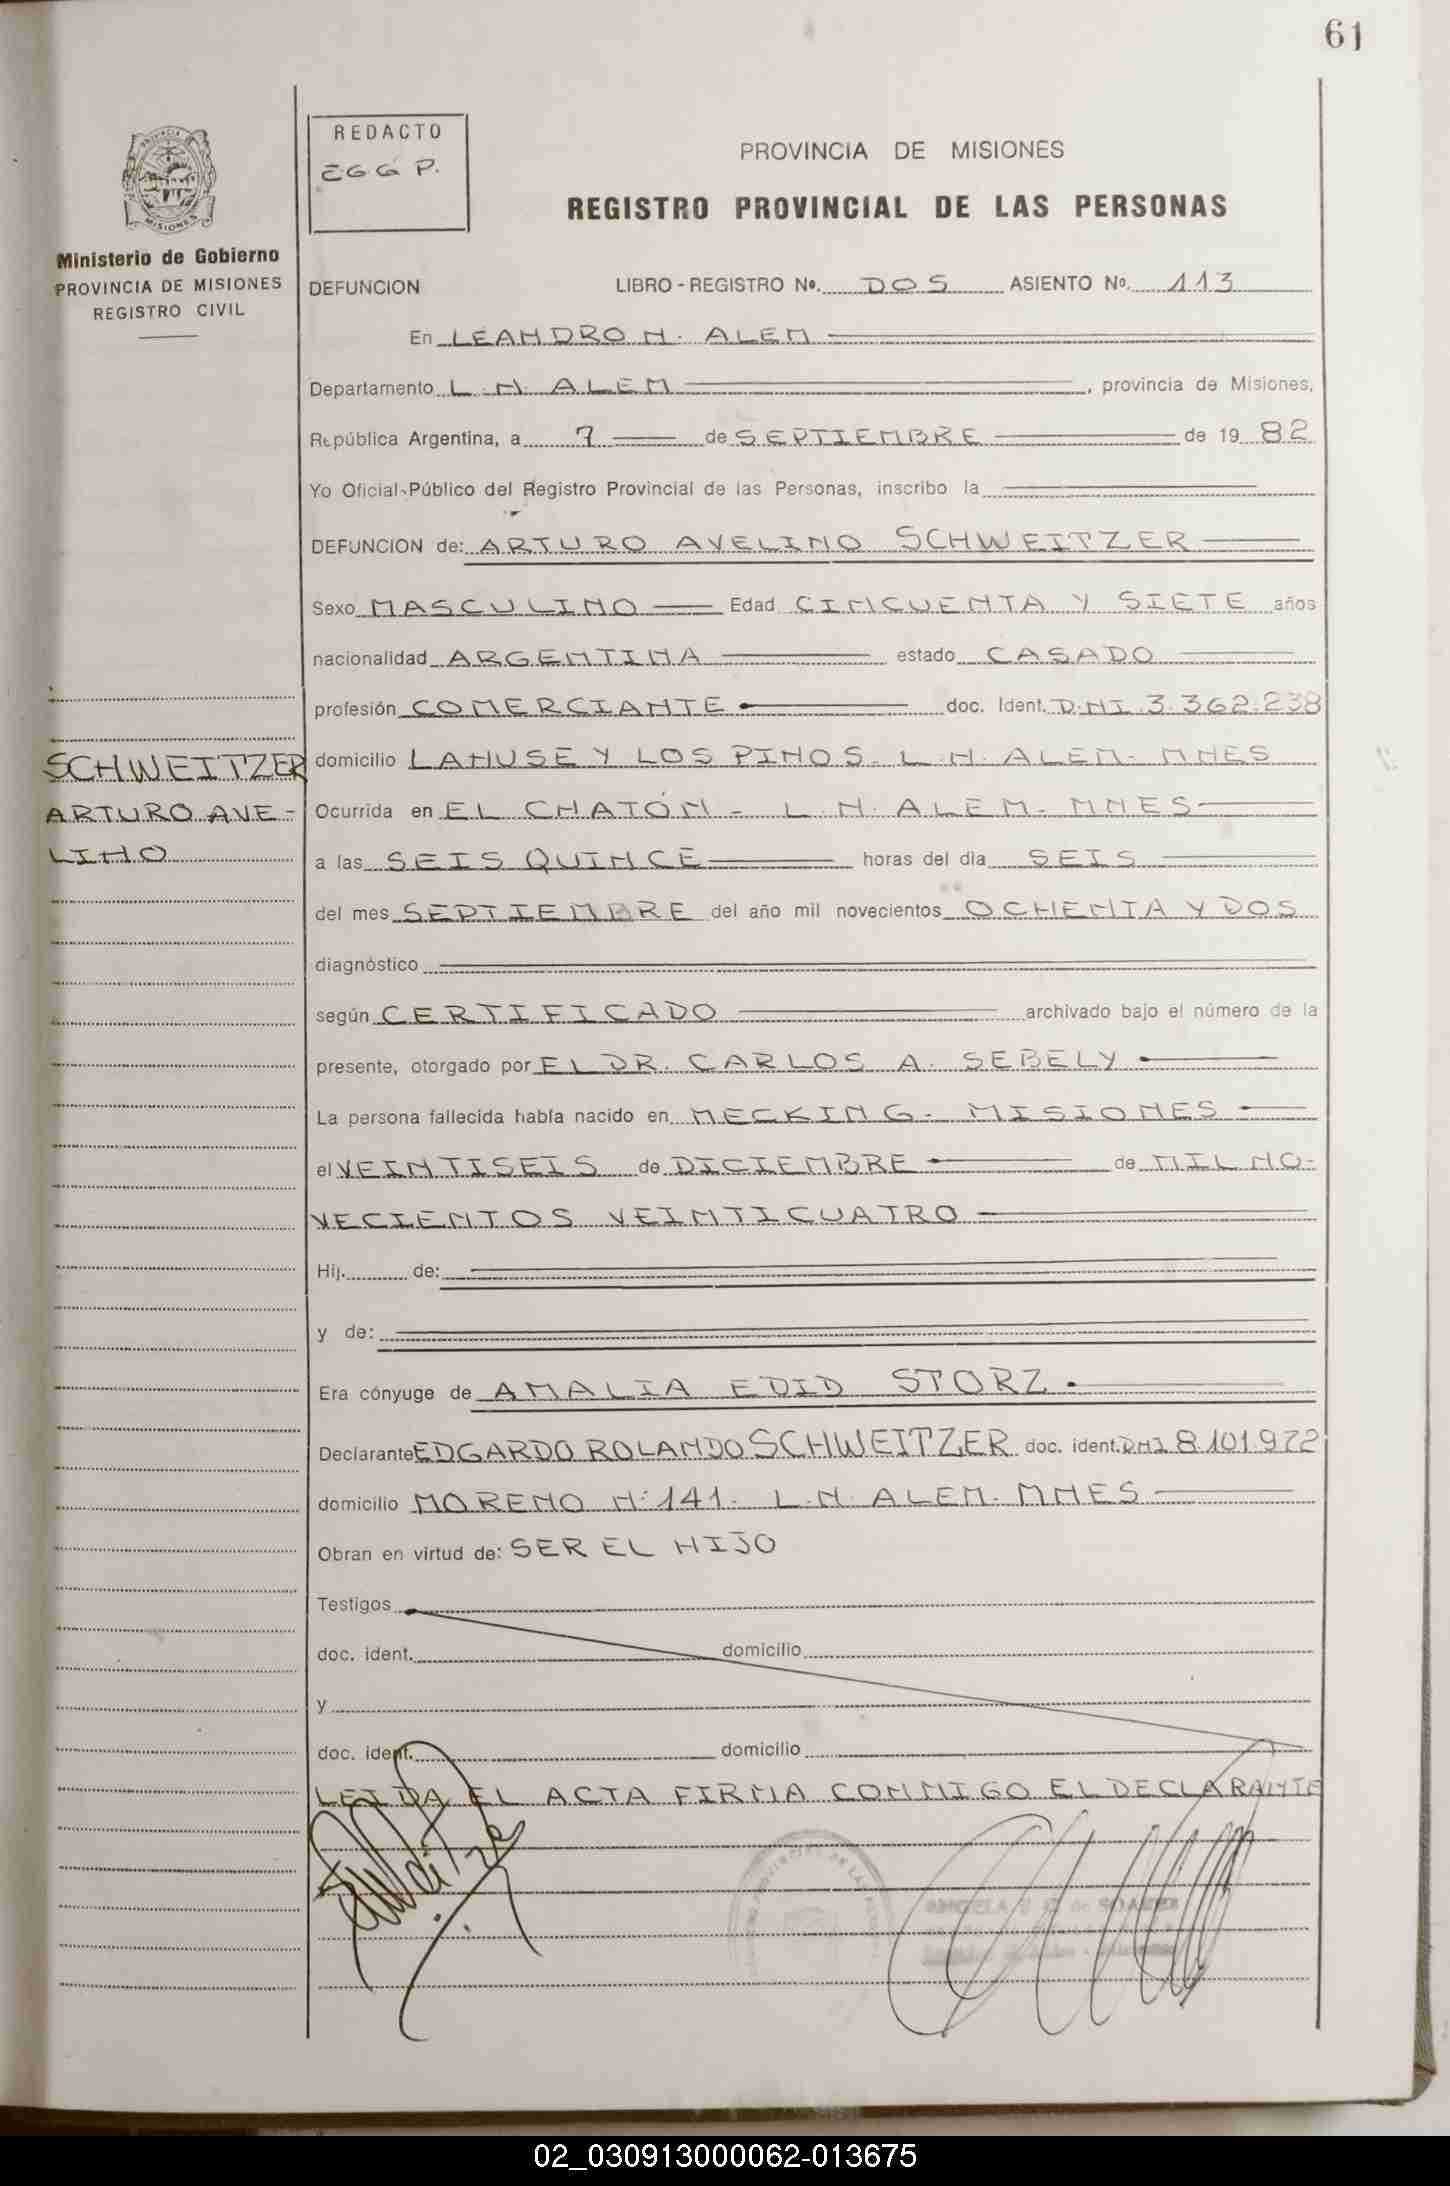 61
REDACTO
EGGP.
PROVINCIA DE MISIONES
REGISTRO PROVINCIAL DE LAS PERSONAS
PROVINCIA DE
MISIONES
Ministerio de Gobierno
PROVINCIA DE MISIONES
REGISTRO CIVIL
DEFUNCION LIBRO - REGISTRO No. DOS ASIENTO No. 113
En LEANDRO N. ALEM
Departamento L. N. ALEM, provincia de Misiones,
República Argentina, a 7 de SEPTIEMBRE de 19 82
Yo Oficial Público del Registro Provincial de las Personas, inscribo la
DEFUNCION de: ARTURO AVELINO SCHWEITZER
Sexo MASCULINO Edad CINCUENTA Y SIETE años
nacionalidad ARGENTINA estado CASADO
profesión COMERCIANTE doc. Ident. D.NI. 3.362.238
SCHWEITZER
ARTURO AVE-
LINO
domicilio LAHUSE Y LOS PINOS. L. N. ALEM - MNES
Ocurrida en EL CHATÓN - L. N. ALEM - MNES
a las SEIS QUINCE horas del día SEIS
del mes SEPTIEMBRE del año mil novecientos OCHENTA Y DOS
diagnóstico
según CERTIFICADO archivado bajo el número de la
presente, otorgado por EL DR. CARLOS A. SEBELY
La persona fallecida había nacido en MECKING - MISIONES
el VEINTISEIS de DICIEMBRE de MIL NO-
VECIENTOS VEINTICUATRO
Hij. de:
y de:
Era cónyuge de AMALIA EDID STORZ.
Declarante EDGARDO ROLANDO SCHWEITZER doc. ident. DNI 8.101.972
domicilio MORENO N: 141. L. N. ALEM. MNES
Obran en virtud de: SER EL HIJO
Testigos
doc. ident. domicilio
y
doc. ident. domicilio
LEIDA EL ACTA FIRMA CONMIGO EL DECLARANTE
02_030913000062-013675